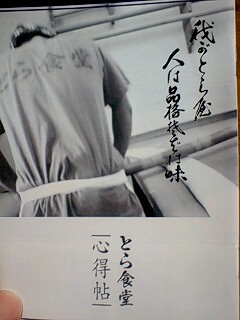 とら食堂
とら
人は品格 は味
とら食堂
心得帖